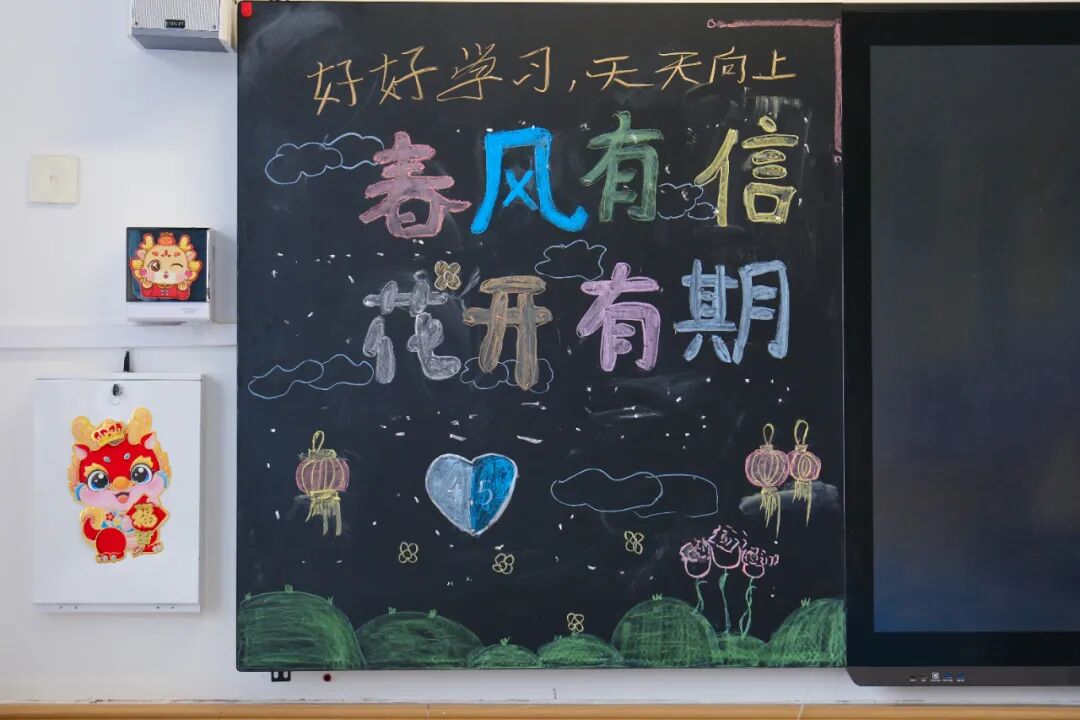 好好学习,天天向上
春风有信
花开有期
45
福